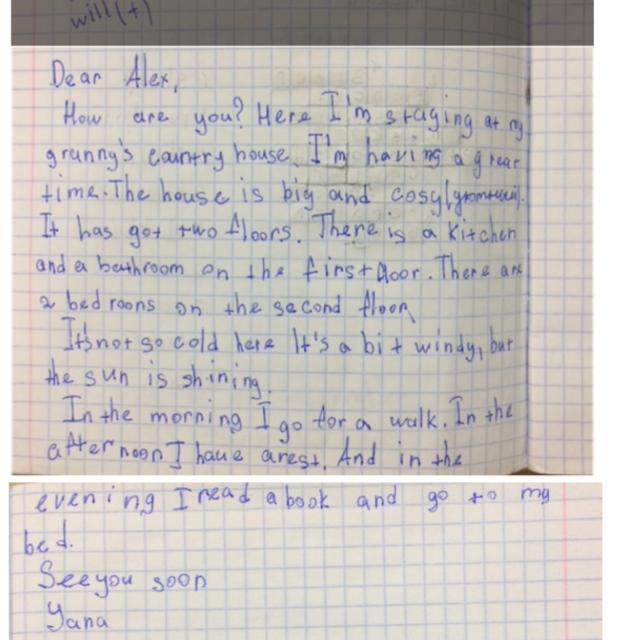 will(+)
Dear Alex,
How are you? Here I'm staging at my
granny's country house. I'm having a great
time. The house is big and cosy(уютный).
It has got two floors. There is a kitchen
and a bathroom on the first floor. There are
2 bedrooms on the second floor
It's not so cold here It's a bit windy, but
the sun is shining.
In the morning I go for a walk. In the
afternoon I have a rest. And in the
evening I read a book and go to my
bed.
See you soon
Yana